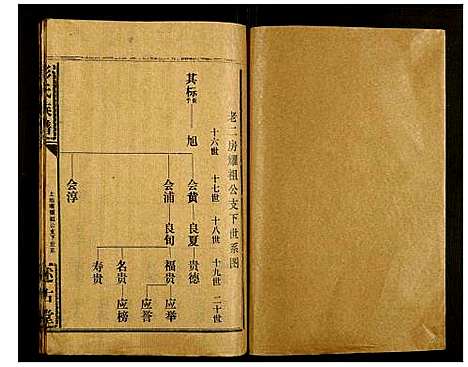 老二房耀祖公支下世系图
十六世 十七世 十八世 十九世 二十世
其标 旭
会黄 良夏 贵德
会浦 良旬 福贵 应举
应誉
名贵 应榜
寿贵
会淳